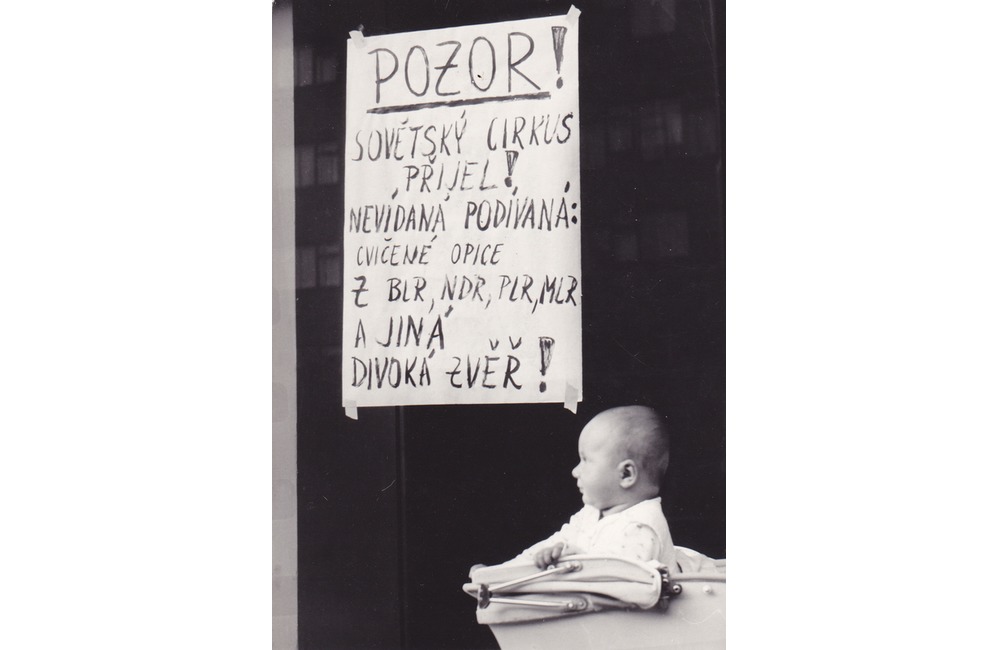 POZOR!
SOVĚTSKÝ CIRKUS
PŘIJEL!
NEVÍDANÁ PODÍVANÁ:
CVIČENÉ OPICE
Z BLR, NDR, PLR, MLR
A JINÁ
DIVOKÁ ZVĚŘ!